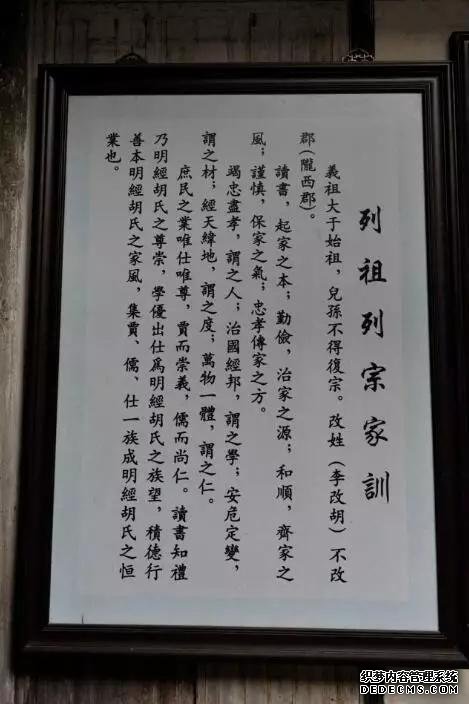 列祖列宗家訓
義祖大于始祖，兒孫不得復宗。改姓（李改胡）不改
郡（隴西郡）。
讀書，起家之本；勤儉，治家之源；和順，齊家之
風；謹慎，保家之氣；忠孝傳家之方。
竭忠盡孝，謂之人；治國經邦，謂之學；安危定變，
謂之材；經天緯地，謂之度；萬物一體，謂之仁。
庶民之業唯仕唯尊，賈而崇義，儒而尚仁。讀書知禮
乃明經胡氏之尊崇，學優出仕爲明經胡氏之族望，積德行
善本明經胡氏之家風，集賈、儒、仕一族成明經胡氏之恒
業也。
织梦内容管理系统
DEDECMS.COM